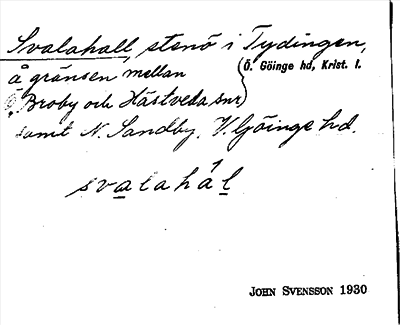 Svalahall, stenö i Tydingen,
å gränsen mellan
(Ö. Göinge hd, Krist. l.
Broby och Hästveda snr)
samt N. Sandby, V. Göinge hd.
svalahál
JOHN SVENSSON 1930